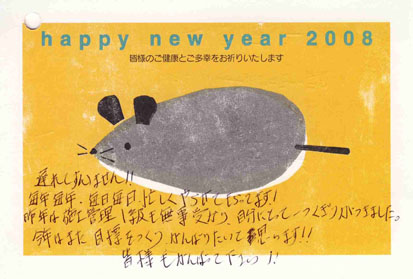 happy new year 2008
皆様のご健康とご多幸をお祈りいたします
遅れてすいません!!
毎年毎年、毎日毎日、忙しくやらせてもらってます!
昨年は施工管理1級も無事受かり、自分にとって一つくぎりがつきました。
今年はまた目標をつくり、がんばりたいと思います!!
皆様もがんばって下さい!!